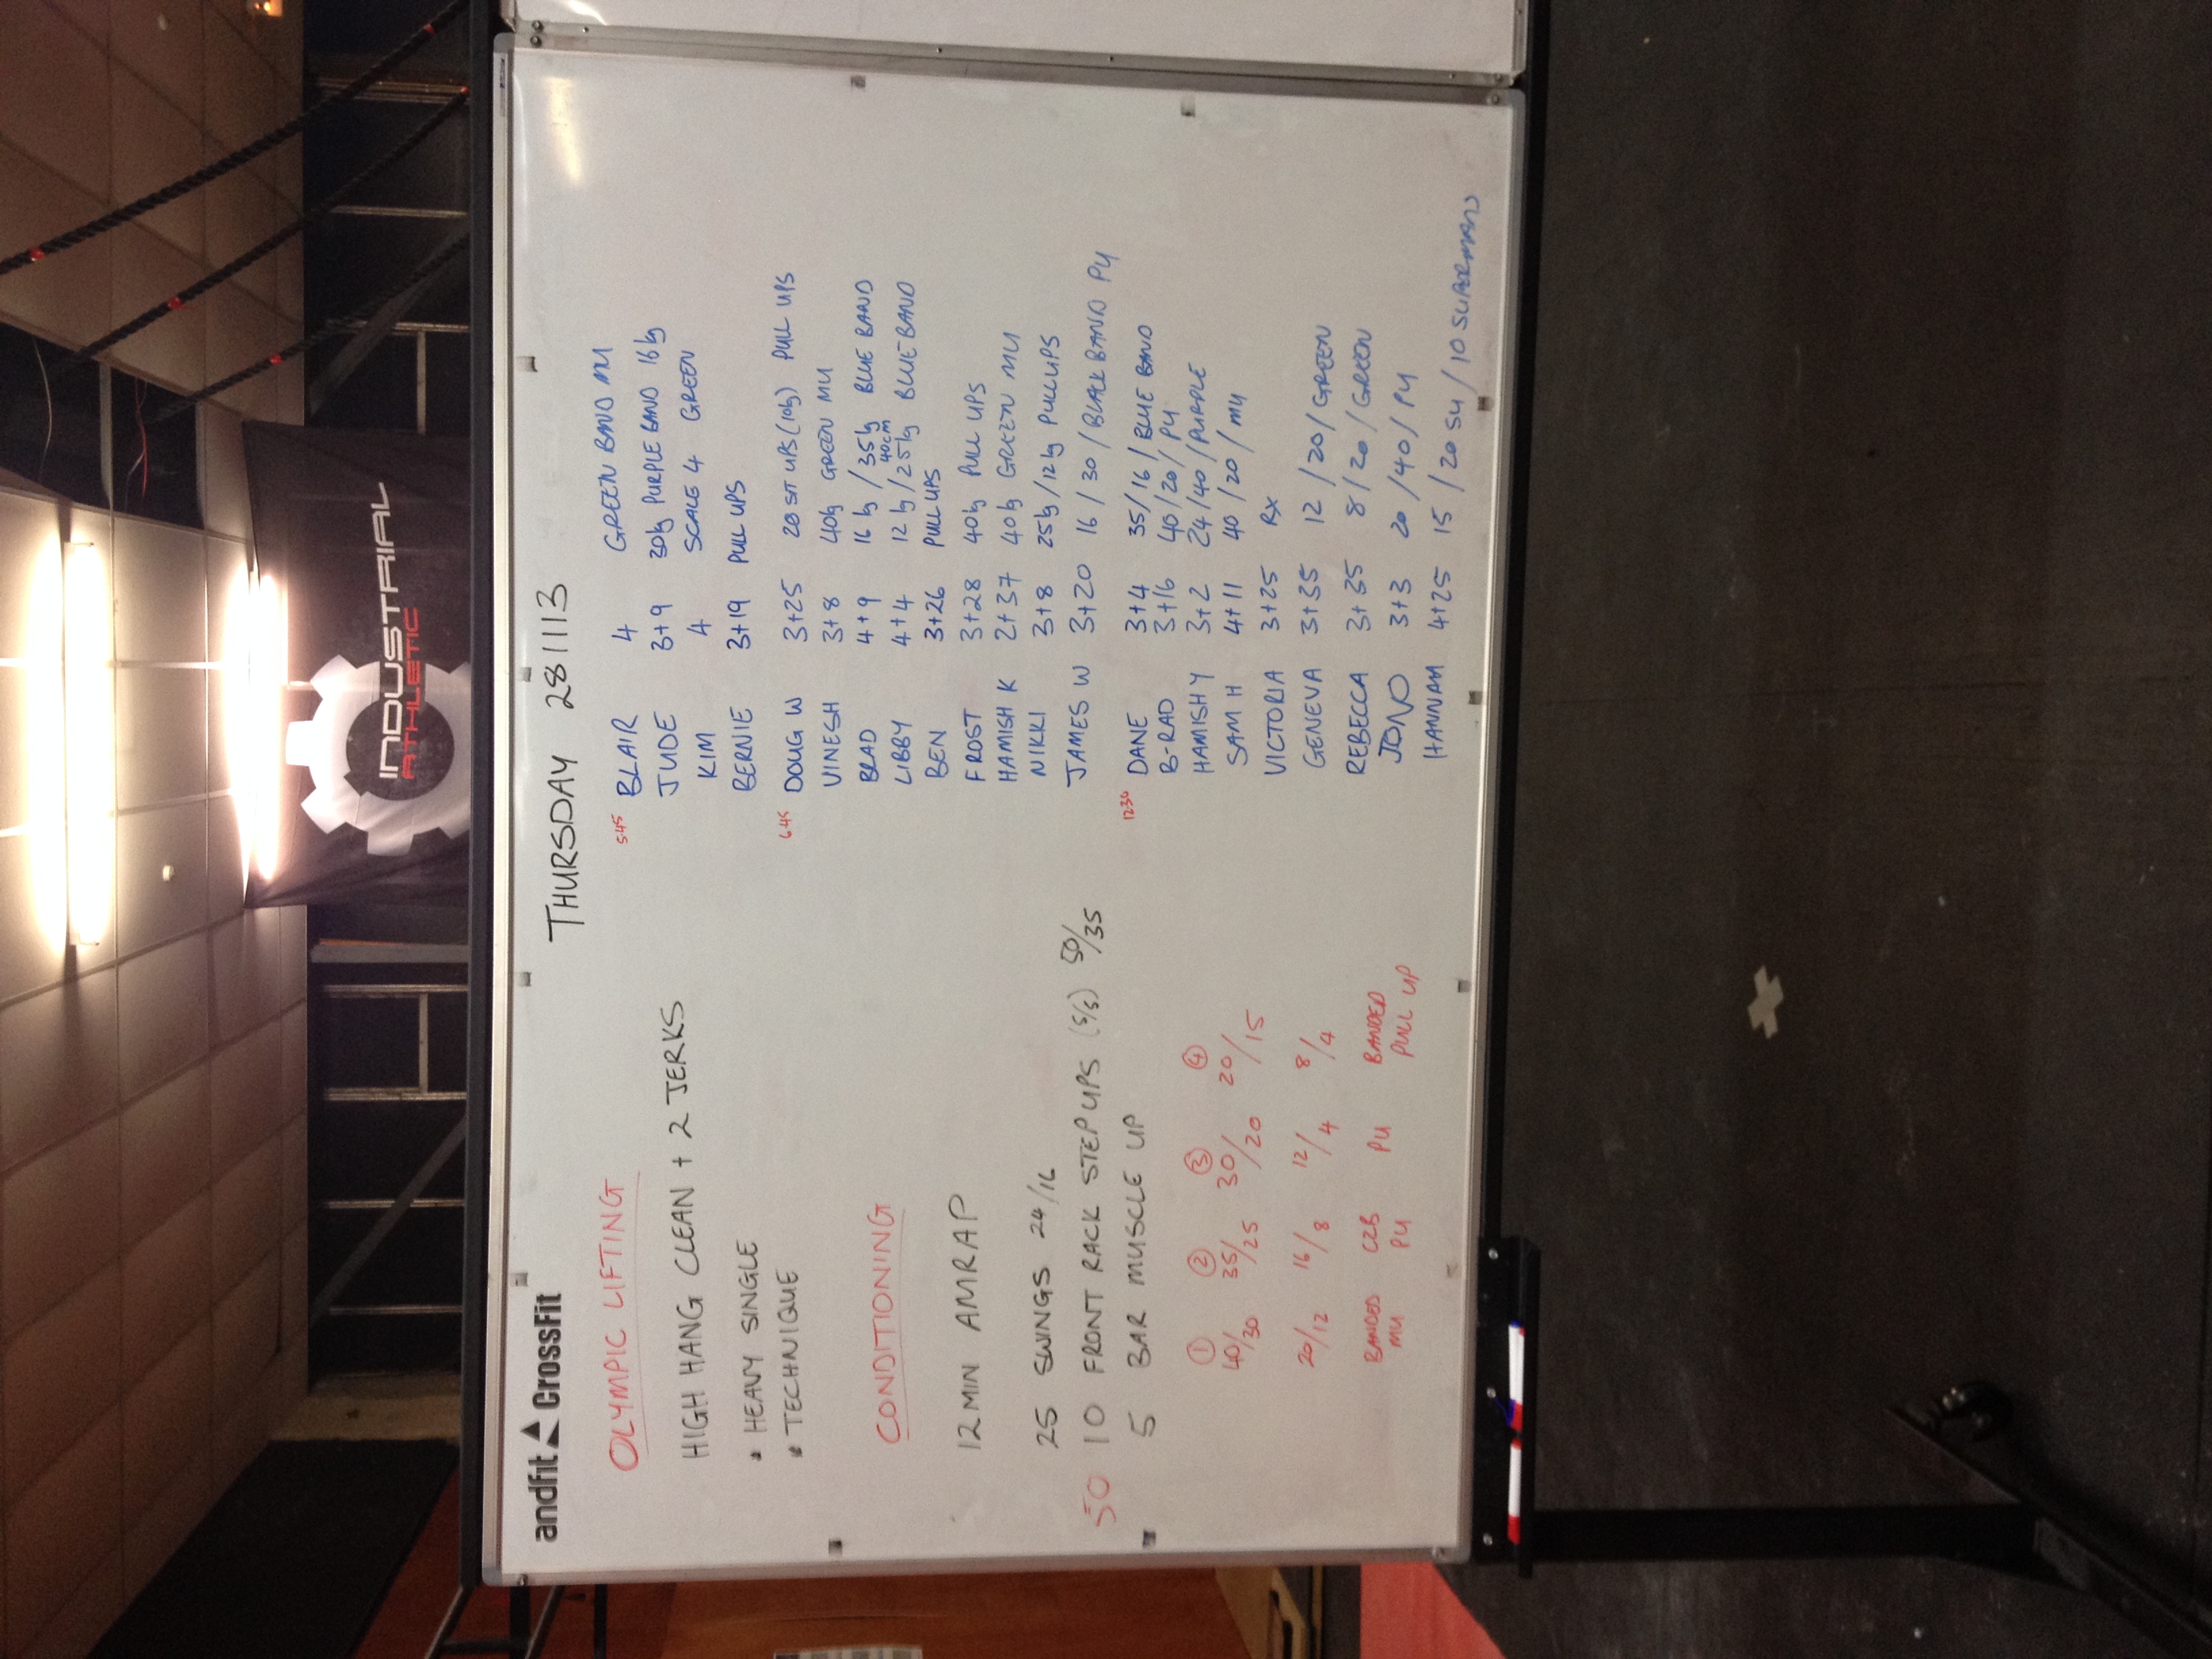 INDUSTRIAL
ATHLETIC
andfit CrossFit
THURSDAY 28/11/13
OLYMPIC LIFTING
HIGH HANG CLEAN + 2 JERKS
• HEAVY SINGLE
• TECHNIQUE
CONDITIONING
12 MIN AMRAP
25 SWINGS 24/16
50 10 FRONT RACK STEP UPS (5/5) 50/35
5 BAR MUSCLE UP
① ② ③ ④
40/30 35/25 30/20 20/15
20/12 16/8 12/4 8/4
BANDED MU C2B PU PU BANDED PULL UP
545 BLAIR 4 GREEN BAND MU
JUDE 3+9 30kg PURPLE BAND 16kg
KIM 4 SCALE 4 GREEN
BERNIE 3+19 PULL UPS
645 DOUG W 3+25 20 SIT UPS (10kg) PULL UPS
VINESH 3+8 40kg GREEN MU
BRAD 4+9 16kg/35kg BLUE BAND
40cm
LIBBY 4+4 12kg/25kg BLUE BAND
BEN 3+26 PULL UPS
FROST 3+28 40kg PULL UPS
HAMISH K 2+37 40kg GREEN MU
NIKKI 3+8 25kg/12kg PULLUPS
JAMES W 3+20 16/30/BLACK BAND PU
1230 DANE 3+4 35/16/BLUE BAND
B-RAD 3+16 40/20/PU
HAMISH Y 3+2 24/40/PURPLE
SAM H 4+11 40/20/MU
VICTORIA 3+25 Rx
GENEVA 3+35 12/20/GREEN
REBECCA 3+35 8/20/GREEN
JONO 3+3 20/40/PU
HANNAH 4+25 15/20 SU/10 SUPERMANS